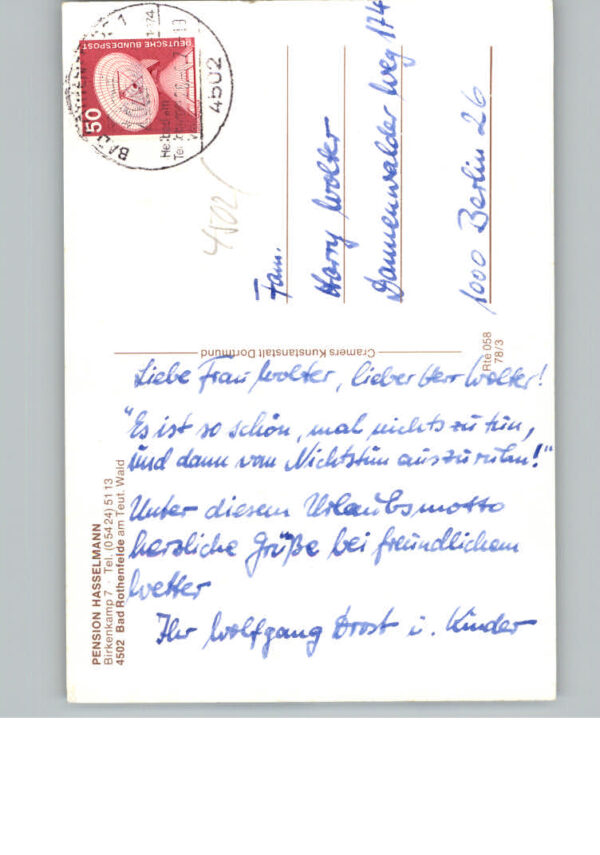 Liebe Frau Wolter, lieber Herr Wolter!
"Es ist so schön, mal nichts zu tun,
und dann vom Nichtstun auszuruhn!"
Unter diesem Urlaubsmotto
herzliche Grüße bei freundlichem
Wetter
Ihr Wolfgang Drost u. Kinder
Fam.
Harry Wolter
Dannenwalder Weg 174
1000 Berlin 26
4502/
DEUTSCHE BUNDESPOST
50
4502
Cramers Kunstanstalt Dortmund
Rte 058
78/3
PENSION HASSELMANN
Birkenkamp 7 · Tel. (05424) 5113
4502 Bad Rothenfelde am Teut. Wald